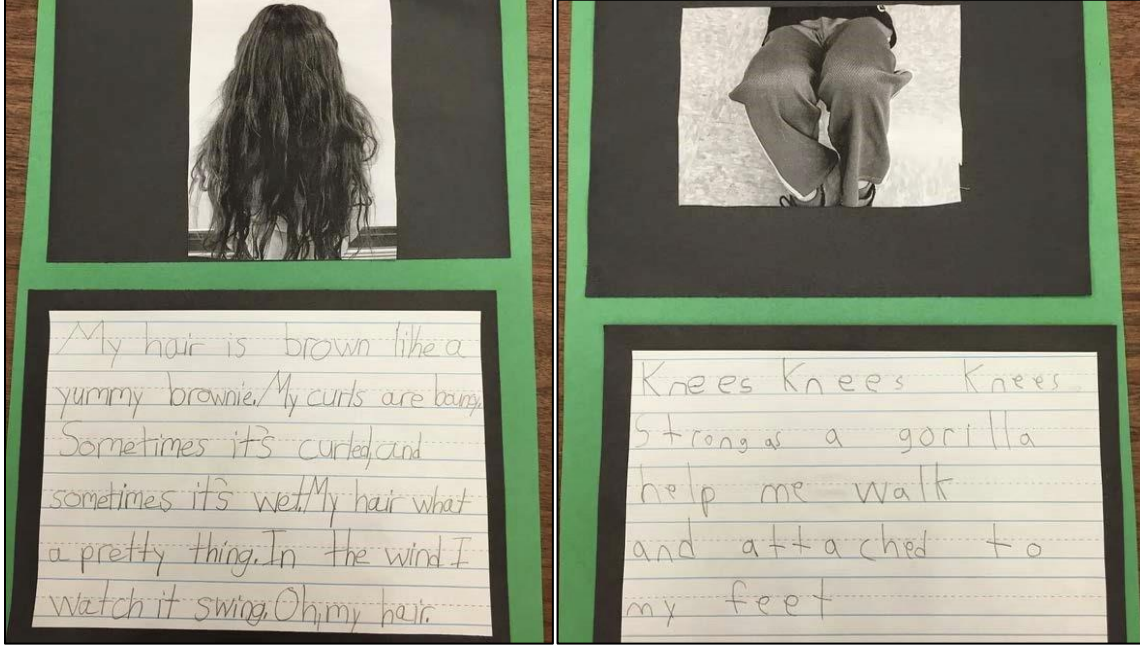 My hair is brown like a
yummy brownie. My curls are bouncy.
Sometimes it's curled, and
sometimes it's wet. My hair what
a pretty thing. In the wind I
watch it swing. Oh, my hair.
Knees Knees Knees
Strong as a gorilla
help me walk
and attached to
my feet